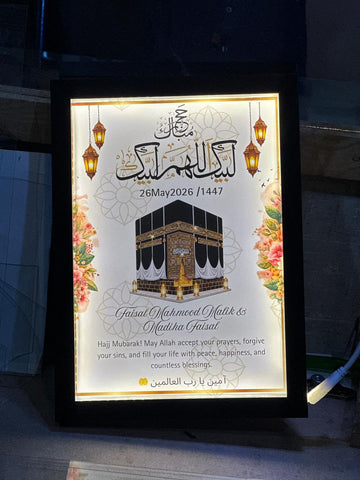 حج مبارک
لبيك اللهم لبيك
26May2026 /1447
Faisal Mahmood Malik &
Madiha Faisal
Hajj Mubarak! May Allah accept your prayers, forgive
your sins, and fill your life with peace, happiness, and
countless blessings.
آمین یا رب العالمین 🤲